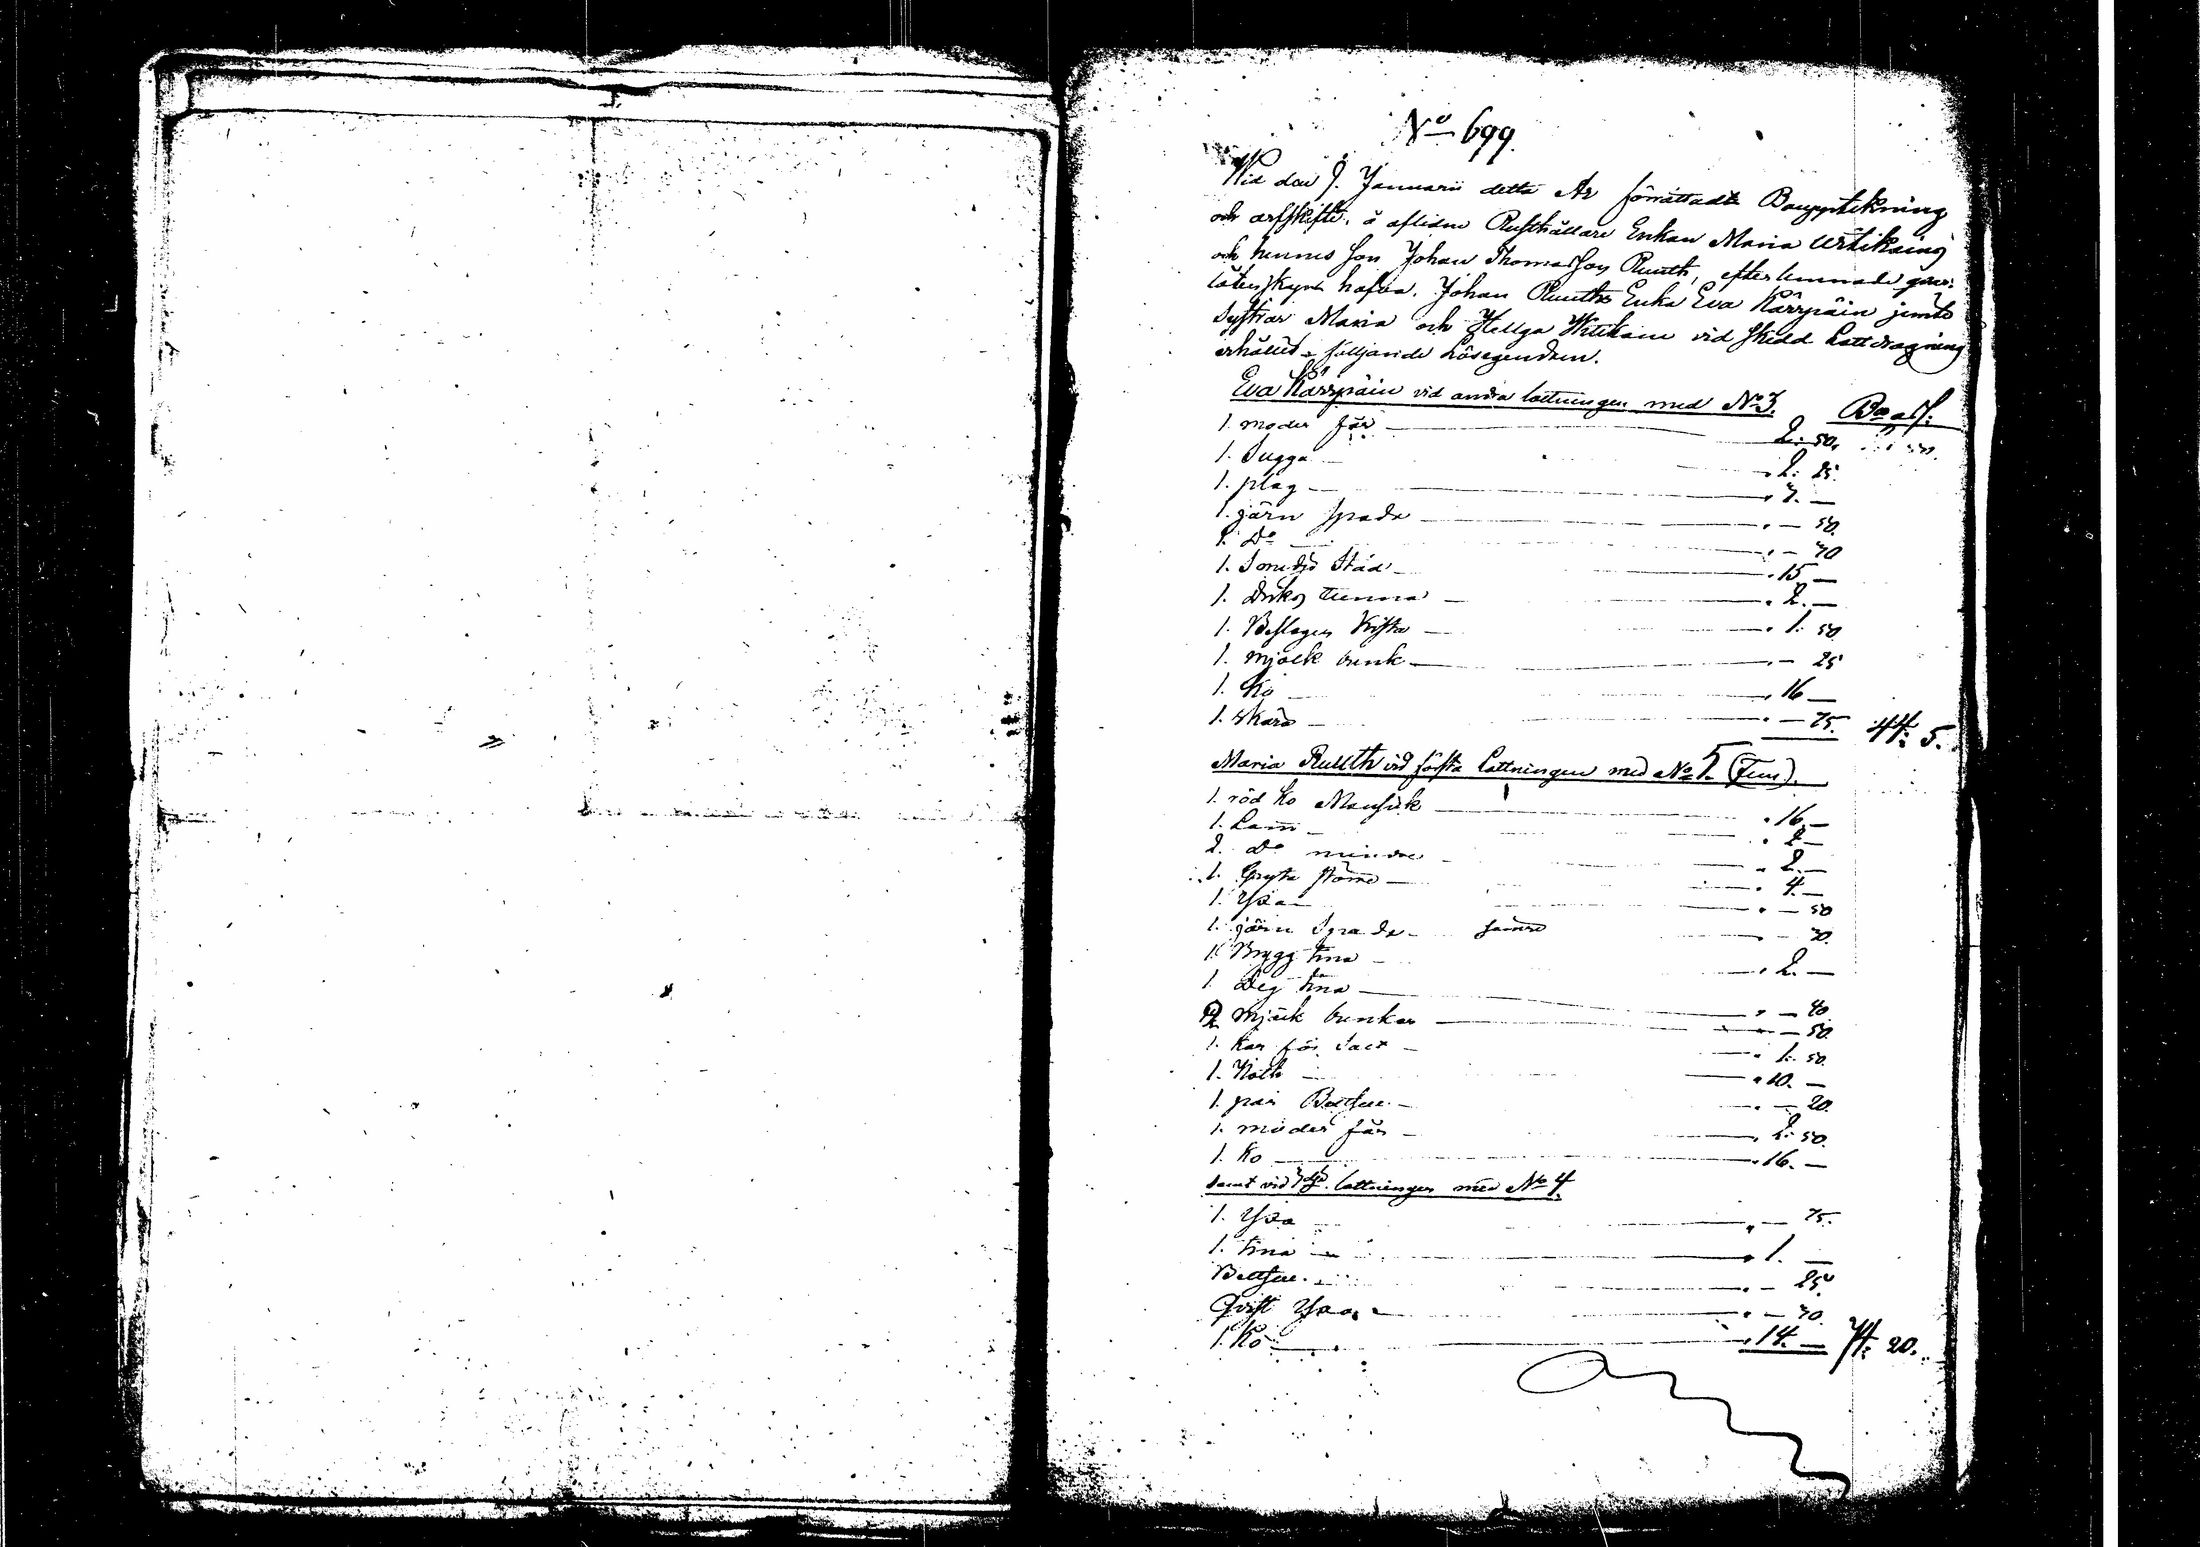 No 699.
Wid den 9. Januarii detta År förrättade Bouppteckning
och arfskifte, å aflidne Rusthållare Enkan Maria
och hennes son Johan Thomasson Ruuth, efterlemnade qvar-
låtenskap hafva. Johan Ruuths Enka Eva Kärpäin jemte
Systrar Maria och Hellga vid skedd Lottdragning
erhållit följande Lösegendom.
Eva Kärpäin vid andra lottningen med No 3.
1. moder får 2. 50.
1. Sugga 2. 25.
1. plog 3. —
1. järn spada — 50.
1. Do — 70
1. Smidjo Städ 15 —
1. Dricks tunna 2. —
1. Beslagen Kista 1. 50
1. mjölk bunk — 25
1. Ko 16 —
1. skära — 75. 44. 5.
Maria Ruuth vid första Lottningen med No 5. (Fem).
1. röd ko Mansik 16. —
1. Lam 2 —
2. Do mindre 2. —
1. Gryta större 4. —
1. Yxa — 50
1. järn Spada sämre — 30.
1. Brygg tina 2. —
1. Deg tina — 40
mjölk bunkar — 50.
1. Kar för Salt 1. 50.
1. Nöth 10. —
1. par Betslu — 20.
1. moder får 2. 50.
1. Ko 16. —
samt vid lottningen med No 4
1. Yxa — 75.
1. tina 1. —
Betslu — 25.
Qvist Yxa — 70.
1. Ko 14. — 74. 20.